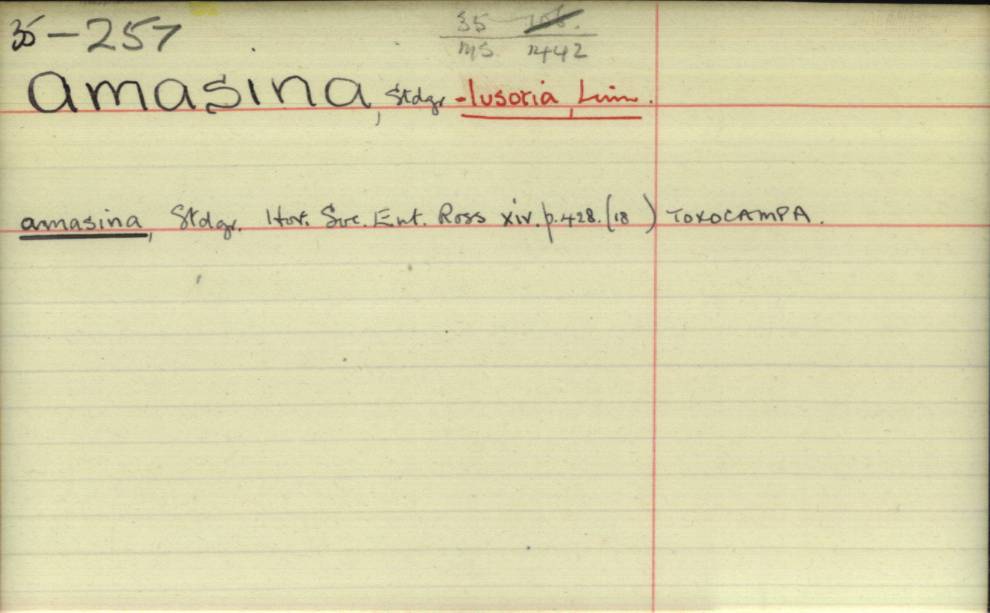 35-257
35
ms. 1442
amasina, Stdgr -lusoria, Linn.
amasina, Stdgr. Hor. Soc. Ent. Ross xiv. p.428. (18 ) TOXOCAMPA.